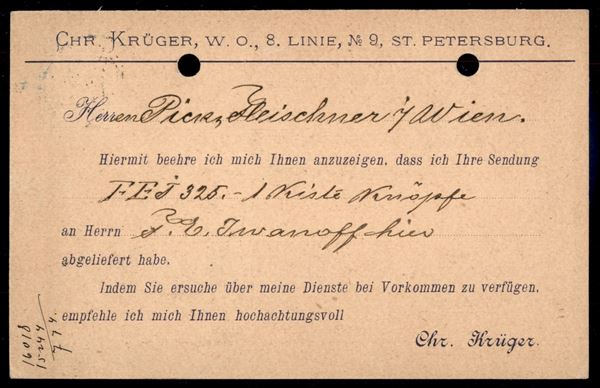 CHR. KRÜGER, W. O., 8. LINIE, № 9, ST. PETERSBURG.
Herren Pick & Fleischner / Wien.
Hiermit beehre ich mich Ihnen anzuzeigen, dass ich Ihre Sendung
325.- 1 Kiste Knöpfe
an Herrn F. E. Iwanoff hier
abgeliefert habe.
Indem Sie ersuche über meine Dienste bei Vorkommen zu verfügen,
empfehle ich mich Ihnen hochachtungsvoll
Chr. Krüger.
16018
15244
774.